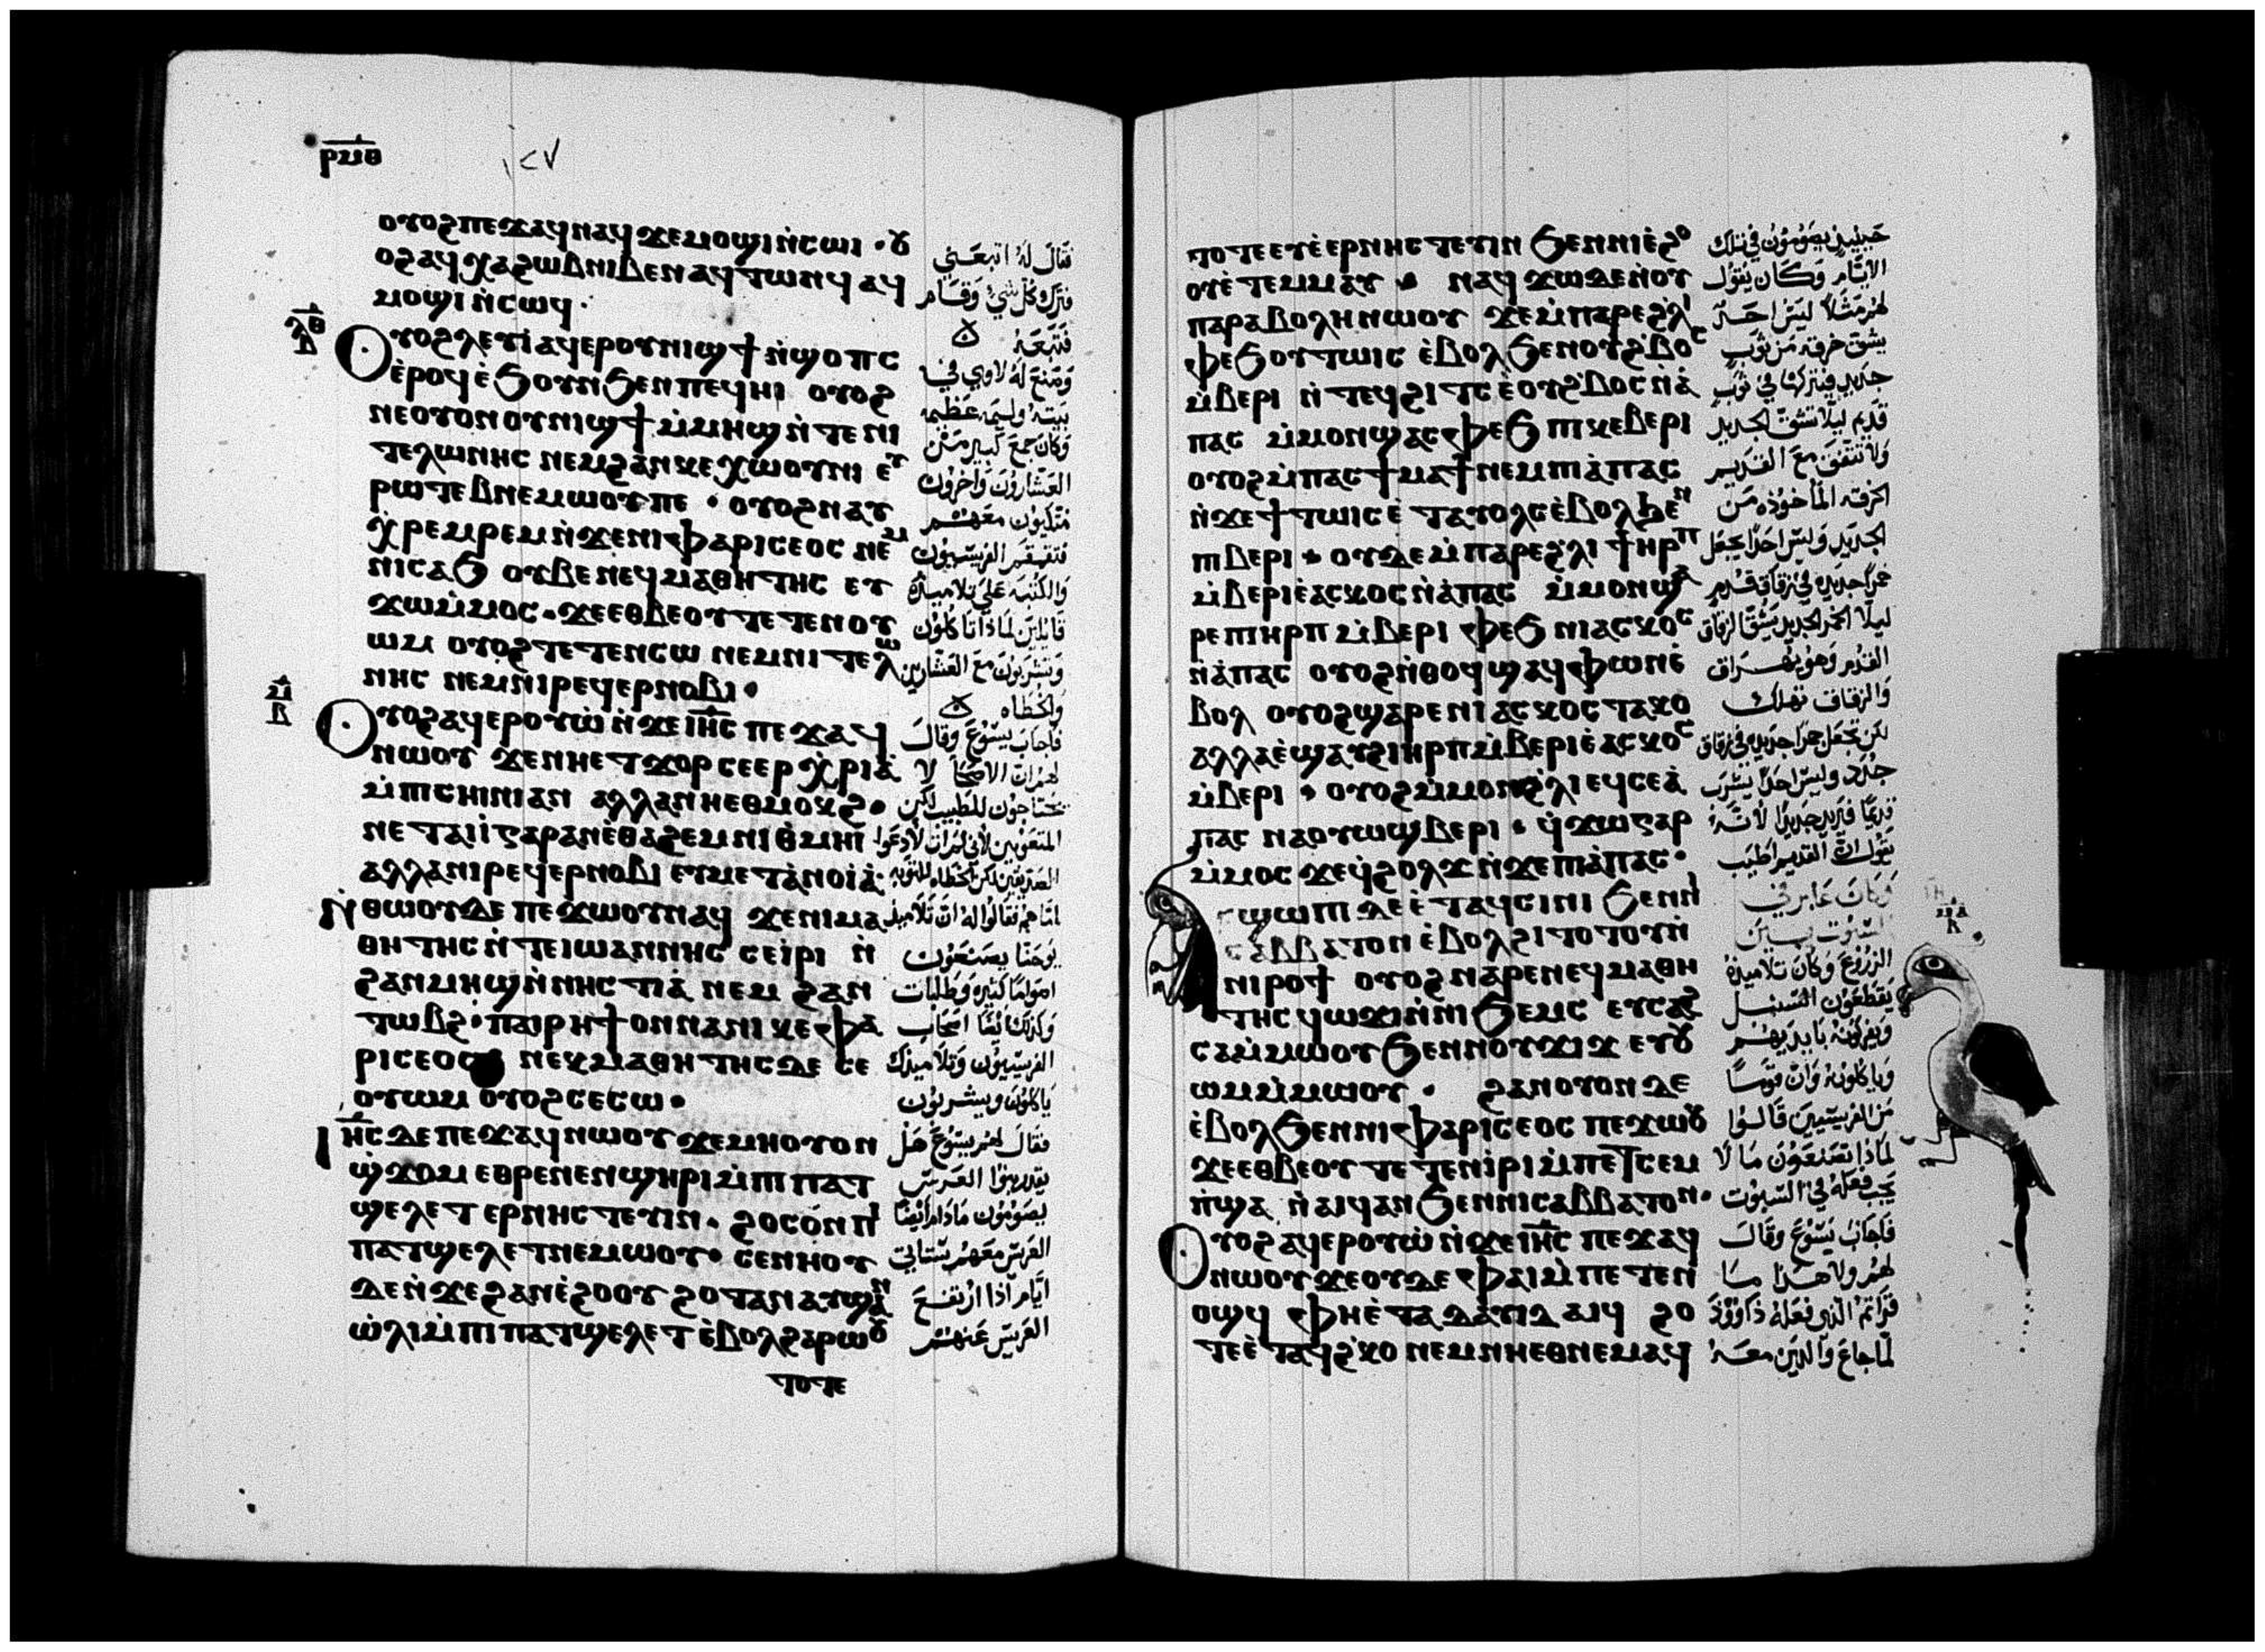 ⲣⲙⲑ
١٢٧
ⲟⲩⲟϩ ⲡⲉϫⲁϥ ⲛⲁϥ ϫⲉ ⲙⲟϣⲓ ⲛ̀ⲥⲱⲓ · ⲟⲩ
ⲟϩ ⲁϥⲭⲁ ϩⲱⲃ ⲛⲓⲃⲉⲛ ⲁϥⲧⲱⲛϥ ⲁϥ
ⲙⲟϣⲓ ⲛ̀ⲥⲱϥ ·
ⲗⲑ
ⲃ
Ⲟⲩⲟϩ ⲗⲉⲩⲓ̀ ⲁϥⲉⲣ ⲟⲩⲛⲓϣϯ ⲛ̀ϣⲟⲡⲥ
ⲉ̀ⲣⲟϥ ⲉ̀ϧⲟⲩⲛ ϧⲉⲛ ⲡⲉϥⲏⲓ ⲟⲩⲟϩ
ⲛⲉ ⲟⲩⲟⲛ ⲟⲩⲛⲓϣϯ ⲙ̀ⲙⲏϣ ⲛ̀ⲧⲉ ⲛⲓ
ⲧⲉⲗⲱⲛⲏⲥ ⲛⲉⲙ ϩⲁⲛⲕⲉⲭⲱⲟⲩⲛⲓ ⲉⲩ
ⲣⲱⲧⲉⲃ ⲛⲉⲙⲱⲟⲩ ⲡⲉ · ⲟⲩⲟϩ ⲛⲁⲩ
ⲭ̀ⲣⲉⲙⲣⲉⲙ ⲛ̀ϫⲉ ⲛⲓⲫⲁⲣⲓⲥⲉⲟⲥ ⲛⲉⲙ
ⲛⲓⲥⲁϧ ⲟⲩⲃⲉ ⲛⲉϥⲙⲁⲑⲏⲧⲏⲥ ⲉⲩ
ϫⲱ ⲙ̀ⲙⲟⲥ · ϫⲉ ⲉⲑⲃⲉⲟⲩ ⲧⲉⲧⲉⲛⲟⲩ
ⲱⲙ ⲟⲩⲟϩ ⲧⲉⲧⲉⲛⲥⲱ ⲛⲉⲙ ⲛⲓⲧⲉⲗⲱ
ⲛⲏⲥ ⲛⲉⲙ ⲛⲓⲣⲉϥⲉⲣⲛⲟⲃⲓ ·
ⲙ
ⲃ
Ⲟⲩⲟϩ ⲁϥⲉⲣⲟⲩⲱ̀ ⲛ̀ϫⲉ ⲓⲏⲥ ⲡⲉϫⲁϥ
ⲛⲱⲟⲩ ϫⲉ ⲛⲏ ⲉⲧϫⲟⲣ ⲥⲉⲉⲣⲭ̀ⲣⲓⲁ̀
ⲙ̀ⲡⲥⲏⲓⲛⲓ ⲁⲛ ⲁⲗⲗⲁ ⲛⲏⲉⲑⲙⲟⲕϩ ·
ⲛⲉⲧⲁⲓⲓ̀ ⲅⲁⲣ ⲁⲛ ⲉ̀ⲑⲁϩⲉⲙ ⲛⲓⲑ̀ⲙⲏⲓ
ⲁⲗⲗⲁ ⲛⲓⲣⲉϥⲉⲣⲛⲟⲃⲓ ⲉⲩⲙⲉⲧⲁⲛⲟⲓⲁ̀ ·
Ⲛ̀ⲑⲱⲟⲩ ⲇⲉ ⲡⲉϫⲱⲟⲩ ⲛⲁϥ ϫⲉ ⲛⲓⲙⲁ
ⲑⲏⲧⲏⲥ ⲛ̀ⲧⲉ ⲓⲱⲁⲛⲛⲏⲥ ⲥⲉⲓ̀ⲣⲓ ⲛ̀
ϩⲁⲛⲙⲏϣ ⲛ̀ⲛⲏⲥⲧⲓⲁ̀ ⲛⲉⲙ ϩⲁⲛ
ⲧⲱⲃϩ · ⲡⲁⲓⲣⲏϯ ⲟⲛ ⲛⲁ ⲛⲓⲕⲉⲫⲁ
ⲣⲓⲥⲉⲟⲥ ⲛⲉⲕⲙⲁⲑⲏⲧⲏⲥ ⲇⲉ ⲥⲉ
ⲟⲩⲱⲙ ⲟⲩⲟϩ ⲥⲉⲥⲱ ·
Ⲓⲏⲥ ⲇⲉ ⲡⲉϫⲁϥ ⲛⲱⲟⲩ ϫⲉ ⲙⲏ ⲟⲩⲟⲛ
ϣ̀ϫⲟⲙ ⲉⲑⲣⲉ ⲛⲉⲛϣⲏⲣⲓ ⲙ̀ⲡⲓⲡⲁⲧ
ϣⲉⲗⲉⲧ ⲉⲣⲛⲏⲥⲧⲉⲩⲓⲛ · ϩⲟⲥⲟⲛ ⲡⲓ
ⲡⲁⲧϣⲉⲗⲉⲧ ⲛⲉⲙⲱⲟⲩ · ⲥⲉⲛⲏⲟⲩ
ⲇⲉ ⲛ̀ϫⲉ ϩⲁⲛⲉ̀ϩⲟⲟⲩ ϩⲟⲧⲁⲛ ⲁⲩϣⲁⲛ
ⲱ̀ⲗⲓ ⲙ̀ⲡⲓⲡⲁⲧϣⲉⲗⲉⲧ ⲉ̀ⲃⲟⲗ ϩⲁⲣⲱⲟⲩ
ⲧⲟⲧⲉ
فقال له اتبعني
فترك كل شيء وقام
فتبعه
وصنع له لاوي في
بيته وليمه عظيمه
وكان جمع كبير من
العشارون واخرون
متكيون معهم
فتقمقم الفريسيون
والكتبه على تلاميذه
قايلين لماذا تاكلون
وتشربون مع العشارين
والخطاه
فاجاب يسوع وقال
لهم ان الاصحا لا
يحتاجون للطبيب لكن
المتعوبين لاني لم ات لادعوا
الصديقين لكن الخطاه للتوبه
اما هم فقالوا له ان تلاميذ
يوحنا يصنعون
اصواما كثيره وطلبات
وكذلك ايضا اصحاب
الفريسيون وتلاميذك
ياكلون ويشربون
فقال لهم يسوع هل
يقدر بنوا العرس
يصوموا ما دام ايضا
العريس معهم ستاتي
ايام اذا ارتفع
العريس عنهم
ⲧⲟⲧⲉ ⲉⲩⲉ̀ⲉⲣⲛⲏⲥⲧⲉⲩⲓⲛ ϧⲉⲛ ⲛⲓⲉ̀ϩⲟ
ⲟⲩ ⲉ̀ⲧⲉⲙⲙⲁⲩ · ⲛⲁϥϫⲱ ⲇⲉ ⲛ̀ⲟⲩ
ⲡⲁⲣⲁⲃⲟⲗⲏ ⲛⲱⲟⲩ ϫⲉ ⲙ̀ⲡⲁⲣⲉ ϩ̀ⲗⲓ
ⲫⲉϧ ⲟⲩⲧⲱⲓⲥ ⲉ̀ⲃⲟⲗ ϧⲉⲛ ⲟⲩϩ̀ⲃⲟⲥ
ⲙ̀ⲃⲉⲣⲓ ⲛ̀ⲧⲉϥϩⲓⲧⲥ ⲉ̀ⲟⲩϩ̀ⲃⲟⲥ ⲛ̀ⲁ̀
ⲡⲁⲥ ⲙ̀ⲙⲟⲛ ϣⲁⲥⲫⲉϧ ⲡⲓⲕⲉⲃⲉⲣⲓ
ⲟⲩⲟϩ ⲙ̀ⲡⲁⲥϯⲙⲁϯ ⲛⲉⲙ ⲡⲓⲁ̀ⲡⲁⲥ
ⲛ̀ϫⲉ ϯⲧⲱⲓⲥ ⲉ̀ⲧⲁⲩⲟⲗⲥ ⲉ̀ⲃⲟⲗ ϧⲉⲛ
ⲡⲓⲃⲉⲣⲓ · ⲟⲩⲇⲉ ⲙ̀ⲡⲁⲣⲉ ϩ̀ⲗⲓ ϯ ⲏⲣⲡ
ⲙ̀ⲃⲉⲣⲓ ⲉ̀ⲁⲥⲕⲟⲥ ⲛ̀ⲁ̀ⲡⲁⲥ ⲙ̀ⲙⲟⲛ ϣⲁ
ⲣⲉ ⲡⲓⲏⲣⲡ ⲙ̀ⲃⲉⲣⲓ ⲫⲉϧ ⲛⲓⲁⲥⲕⲟⲥ
ⲛ̀ⲁ̀ⲡⲁⲥ ⲟⲩⲟϩ ⲛ̀ⲑⲟϥ ϣⲁϥⲫⲱⲛ ⲉ̀
ⲃⲟⲗ ⲟⲩⲟϩ ϣⲁⲣⲉ ⲛⲓⲁⲥⲕⲟⲥ ⲧⲁⲕⲟ
ⲁⲗⲗⲁ ⲉ̀ϣⲁⲩϩⲓ ⲏⲣⲡ ⲙ̀ⲃⲉⲣⲓ ⲉ̀ⲁⲥⲕⲟⲥ
ⲙ̀ⲃⲉⲣⲓ · ⲟⲩⲟϩ ⲙ̀ⲙⲟⲛ ϩ̀ⲗⲓ ⲉϥⲥⲉ ⲁ̀
ⲡⲁⲥ ⲛⲁⲟⲩⲱϣ ⲃⲉⲣⲓ · ϥ̀ϫⲱ ⲅⲁⲣ
ⲙ̀ⲙⲟⲥ ϫⲉ ϥ̀ϩⲟⲗϫ ⲛ̀ϫⲉ ⲡⲓⲁ̀ⲡⲁⲥ ·
ⲁⲥϣⲱⲡⲓ ⲇⲉ ⲉ̀ⲧⲁϥⲥⲓⲛⲓ ϧⲉⲛ ⲛⲓ
ⲥⲁⲃⲃⲁⲧⲟⲛ ⲉ̀ⲃⲟⲗ ϩⲓⲧⲟⲧⲟⲩ ⲛ̀
ⲛⲓⲣⲟϯ ⲟⲩⲟϩ ⲛⲁⲣⲉ ⲛⲉϥⲙⲁⲑⲏ
ⲧⲏⲥ ϥⲱϫⲓ ⲛ̀ⲛⲓϧⲉⲙⲥ ⲉⲩⲥⲁϩ
ⲥⲁϩ ⲙ̀ⲙⲱⲟⲩ ϧⲉⲛ ⲛⲟⲩϫⲓϫ ⲉⲩⲟⲩ
ⲱⲙ ⲙ̀ⲙⲱⲟⲩ · ϩⲁⲛⲟⲩⲟⲛ ⲇⲉ
ⲉ̀ⲃⲟⲗ ϧⲉⲛ ⲛⲓⲫⲁⲣⲓⲥⲉⲟⲥ ⲡⲉϫⲱⲟⲩ
ϫⲉ ⲉⲑⲃⲉⲟⲩ ⲧⲉⲧⲉⲛⲓ̀ⲣⲓ ⲙ̀ⲡⲉⲧⲥⲉⲙ
ⲡ̀ϣⲁ ⲛ̀ⲁⲓϥ ⲁⲛ ϧⲉⲛ ⲛⲓⲥⲁⲃⲃⲁⲧⲟⲛ ·
Ⲟⲩⲟϩ ⲁϥⲉⲣⲟⲩⲱ̀ ⲛ̀ϫⲉ ⲓⲏⲥ ⲡⲉϫⲁϥ
ⲛⲱⲟⲩ ϫⲉ ⲟⲩⲇⲉ ⲫⲁⲓ ⲙ̀ⲡⲉⲧⲉⲛ
ⲟϣϥ ⲫⲏ ⲉ̀ⲧⲁ ⲇⲁⲩⲓⲇ ⲁⲓϥ ϩⲟ
ⲧⲉ ⲉ̀ⲧⲁϥϩ̀ⲕⲟ ⲛⲉⲙ ⲛⲏⲉⲑⲛⲉⲙⲁϥ
حينيذ يصومون في تلك
الايام وكان يقول
لهم مثلا ليس احد
يشق خرقه من ثوب
جديد فيتركها في ثوب
قديم ليلا تشق الجديد
ولا تتفق مع القديم
الخرقه الماخوذه من
الجديد وليس احدا يجعل
خمرا جديده في زقاق قدم
ليلا الخمر الجديد يشق الزقاق
القدم وهو يهراق
والزقاق تهلك
لكن تجعل خمرا جديده في زقاق
جدد وليس احدا يشرب
قديما فيريد جديدا لانه
يقول ان القديم اطيب
وكان عابر في
السبوت بين
الزروع وكان تلاميذه
يقطعون السنبل
ويفركونه بايديهم
وياكلونه وان قوما
من الفريسيين قالوا
لماذا تصنعون ما لا
يجب فعله في السبوت
فاجاب يسوع وقال
لهم ولا هذا ما
قراتم الذي فعله داوود
لما جاع والذين معه
ⲙⲁ
ⲃ